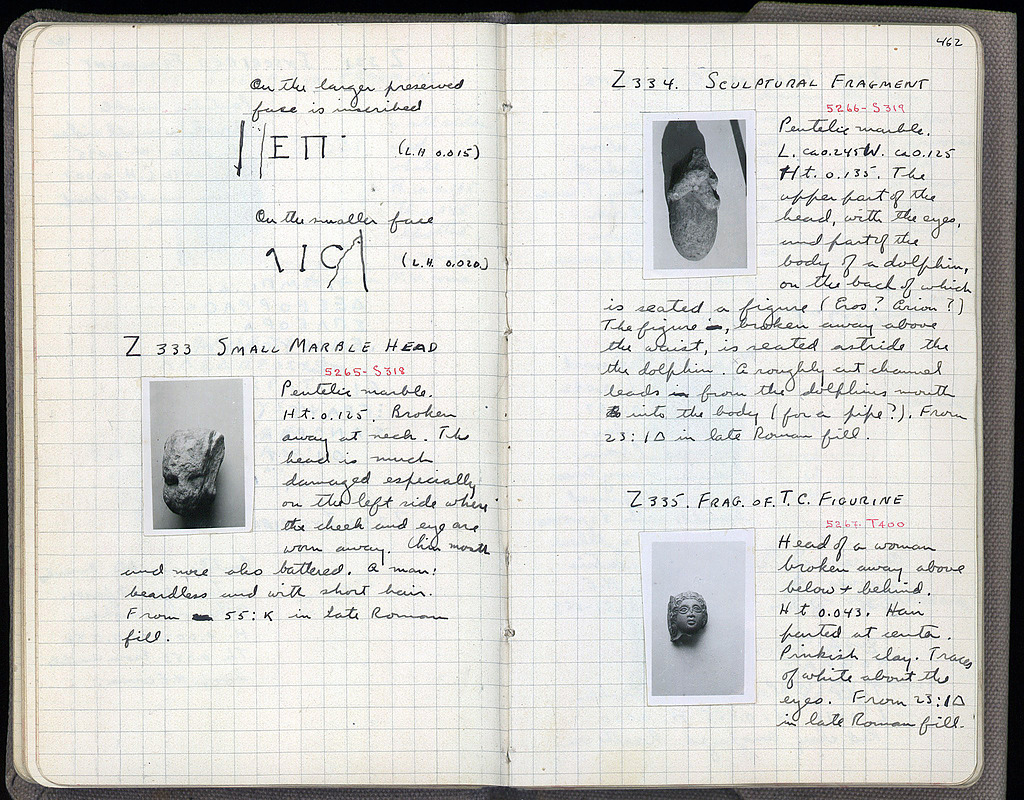 On the larger preserved
face is inscribed
ΕΠ
(L.H 0.015)
On the smaller face
(L.H. 0.020)
Z 333 SMALL MARBLE HEAD
5265-S318
Pentelic marble.
Ht. 0.125. Broken
away at neck. The
head is much
damaged especially
on the left side where
the cheek and eye are
worn away. Chin mouth
and nose also battered. A man:
beardless and with short hair.
From 55:K in late Roman
fill.
462
Z 334. SCULPTURAL FRAGMENT
5266-S319
Pentelic marble.
L. ca 0.245 W. ca 0.125
Ht. 0.135. The
upper part of the
head, with the eyes,
and part of the
body of a dolphin,
on the back of which
is seated a figure (Eros? Arion?)
The figure, broken away above
the waist, is seated astride the
the dolphin. A roughly cut channel
leads from the dolphins mouth
into the body (for a pipe?). From
23:1Δ in late Roman fill.
Z 335. FRAG. OF T.C. FIGURINE
5267-T400
Head of a woman
broken away above
below + behind.
Ht 0.043. Hair
parted at center.
Pinkish clay. Traces
of white about the
eyes. From 23:1Δ
in late Roman fill.